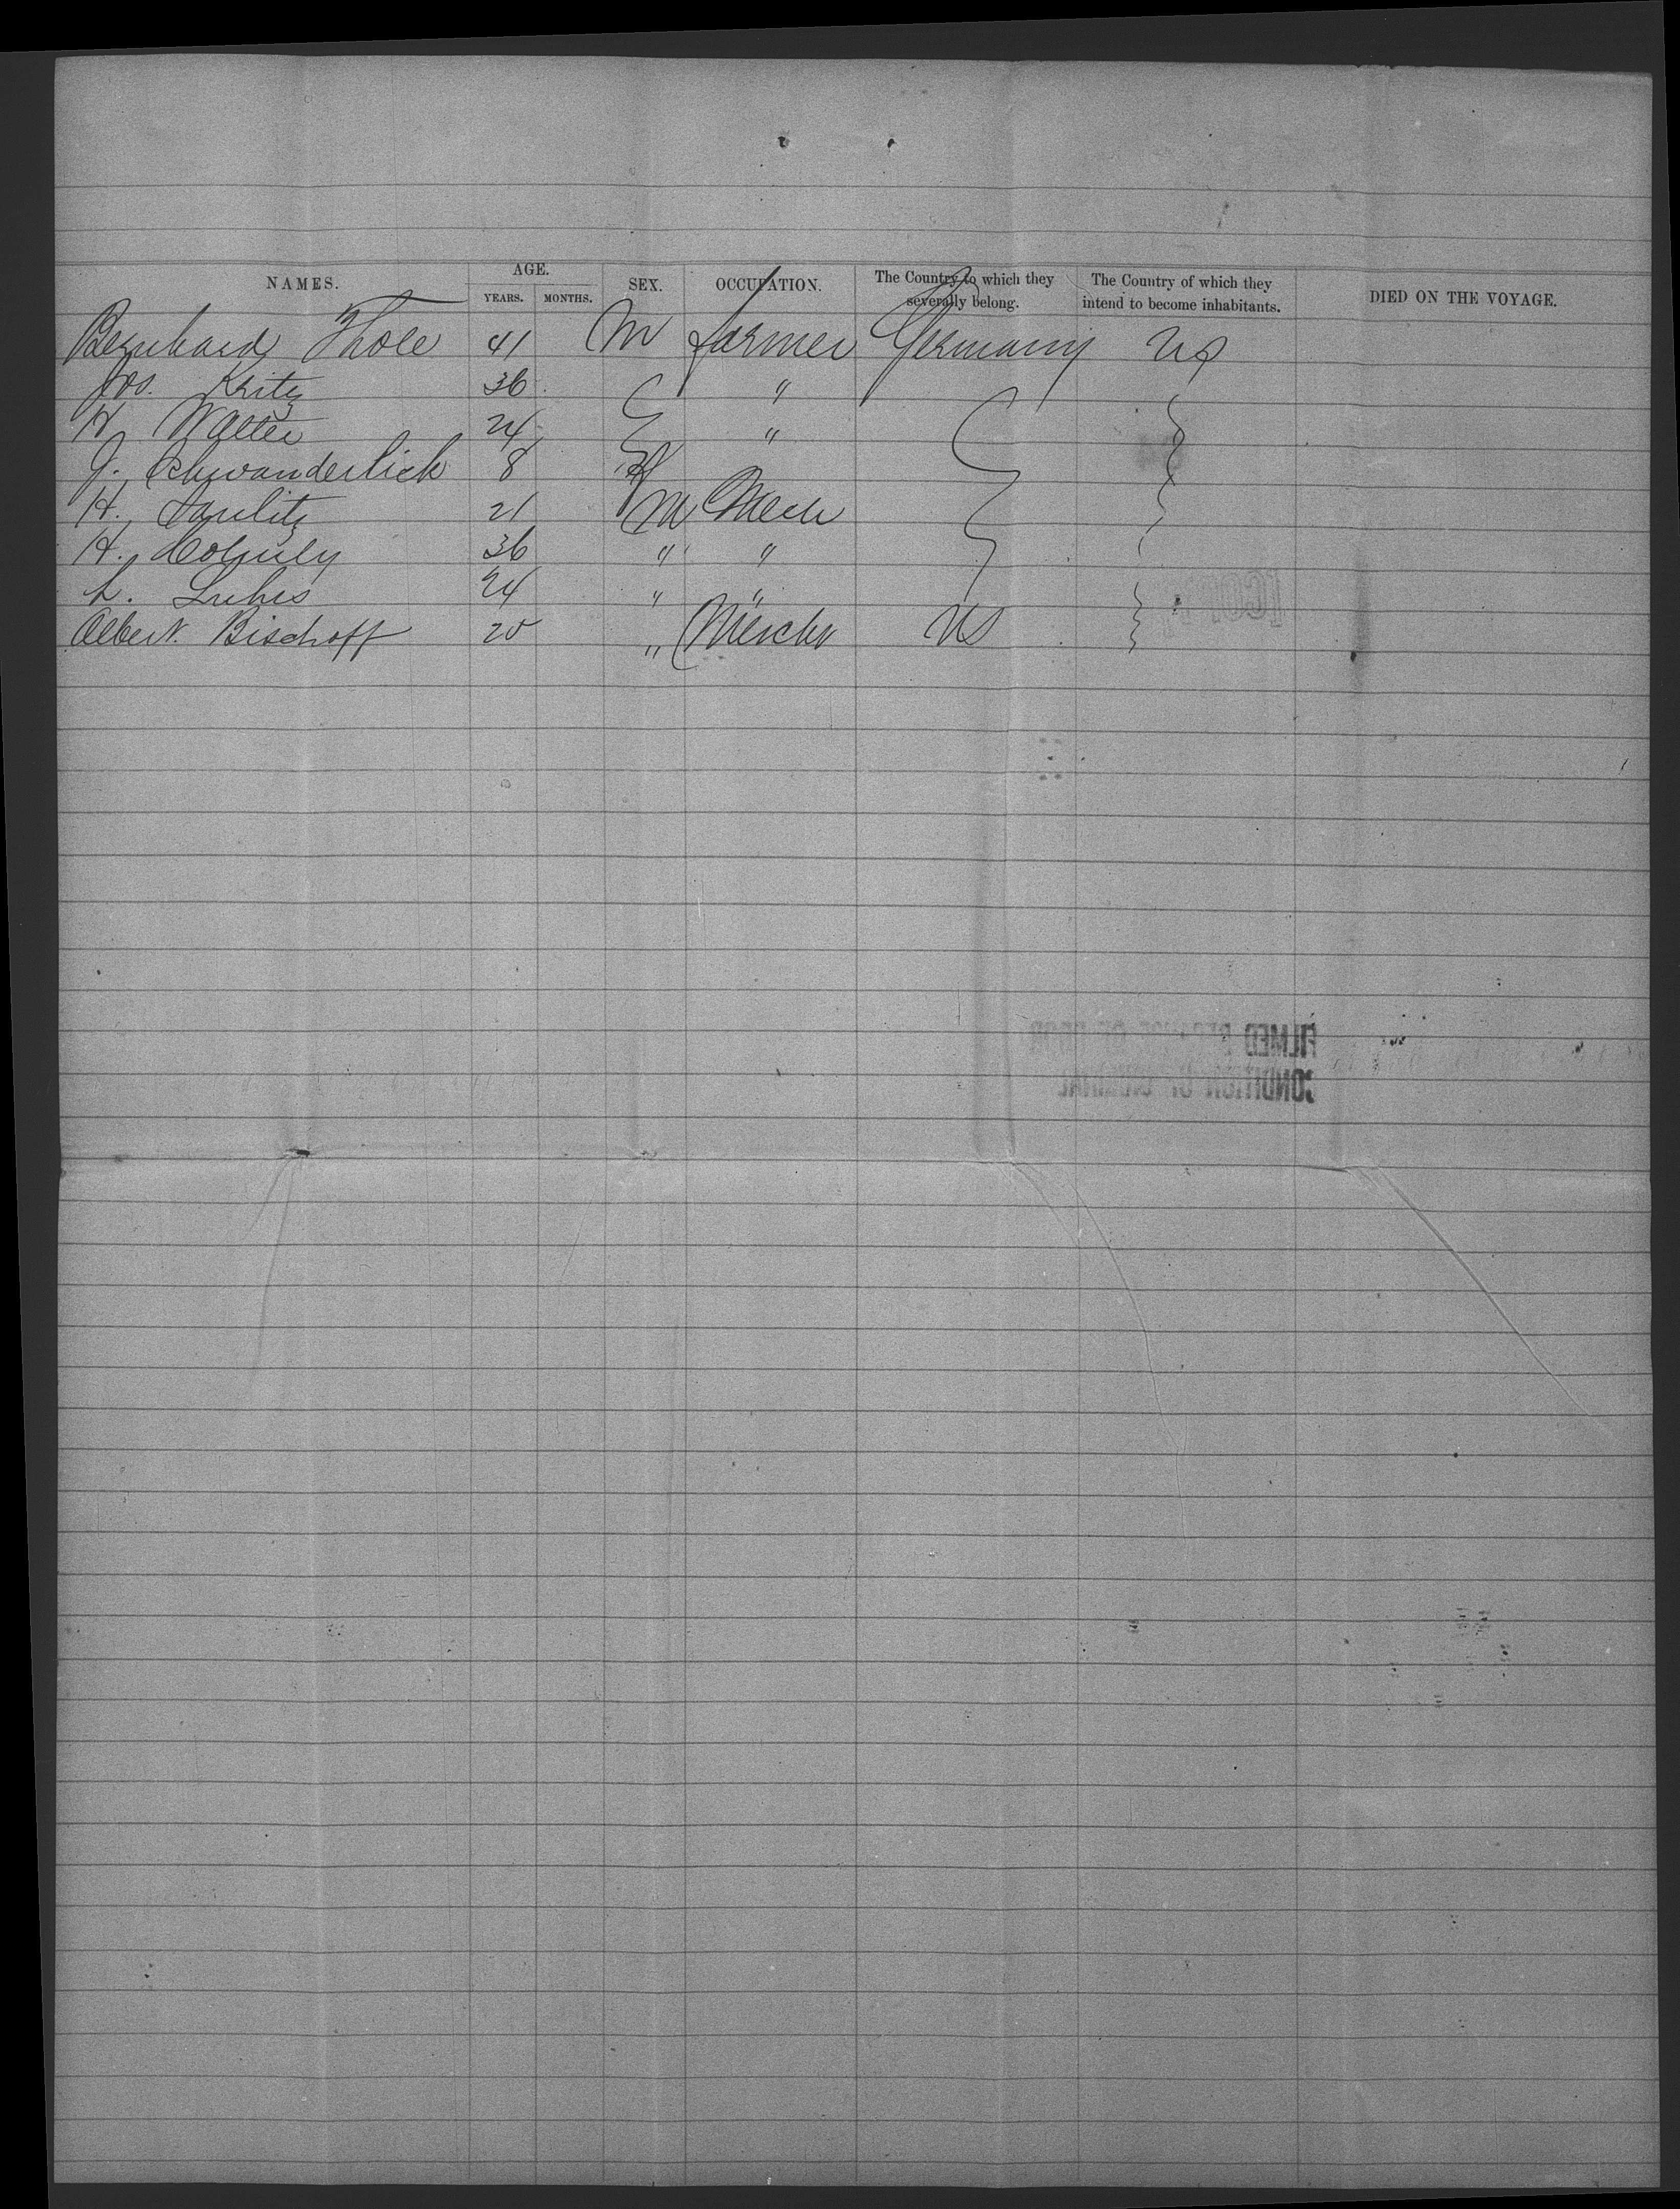 NAMES. AGE. YEARS. MONTHS. SEX. OCCUPATION. The Country to which they severally belong. The Country of which they intend to become inhabitants. DIED ON THE VOYAGE.
Bernhard Thole 41 M farmer Germany US
Jos. Kritz 36 "
H. Walter 24 "
J. Schwanderlick 8
H. 21 M Mech
H. 36 " "
L. Luhrs 24 " "
Albert Bischoff 20 " Mercht US
FILMED
CONDITION OF